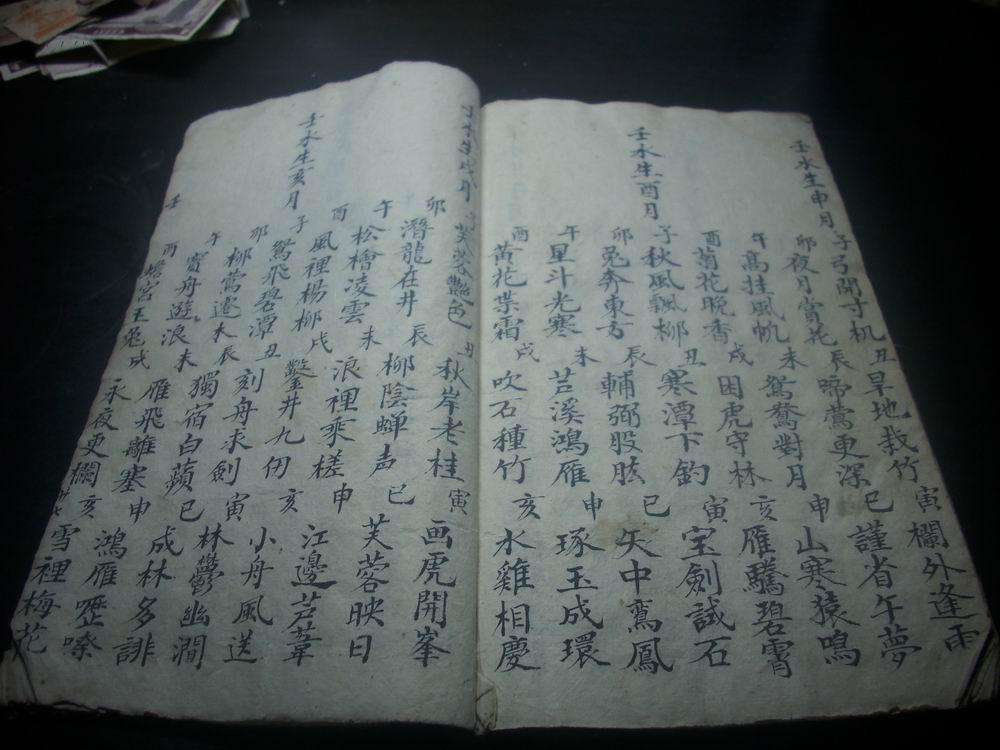 壬水生申月 子 弓開寸机 丑 旱地栽竹 寅 欄外逢雨
卯 夜月賞花 辰 啼鶯更深 巳 謹省午夢
午 高挂風帆 未 鴛鴦對月 申 山寒猿鳴
酉 菊花晚香 戌 困虎守林 亥 雁驣碧霄
壬水生酉月 子 秋風飄柳 丑 寒潭下釣 寅 宝劍試石
卯 兔奔東方 辰 輔弼股肱 巳 矢中鸞鳳
午 星斗光寒 未 苕溪鴻雁 申 琢玉成環
酉 黃花業霜 戌 吹石種竹 亥 水雞相慶
壬水生戌月 芙蓉艷色 丑 秋岸老桂 寅 画虎開峯
卯 潛龍在井 辰 柳陰蟬声 巳 芙蓉映日
午 松檜凌雲 未 浪裡乘槎 申 江邊芦葦
酉 風裡楊柳 戌 鑿井九仞 亥 小舟風送
壬水生亥月 子 鴛飛碧潭 丑 刻舟求劍 寅 林鬱幽澗
卯 柳鶯遷木 辰 獨宿白蘋 巳 成林多誹
午 寶舟遊浪 未 雁飛離塞 申 鴻雁嚦嗦
酉 蟾宮玉兔 戌 永夜更欄 亥 雪裡梅花
壬